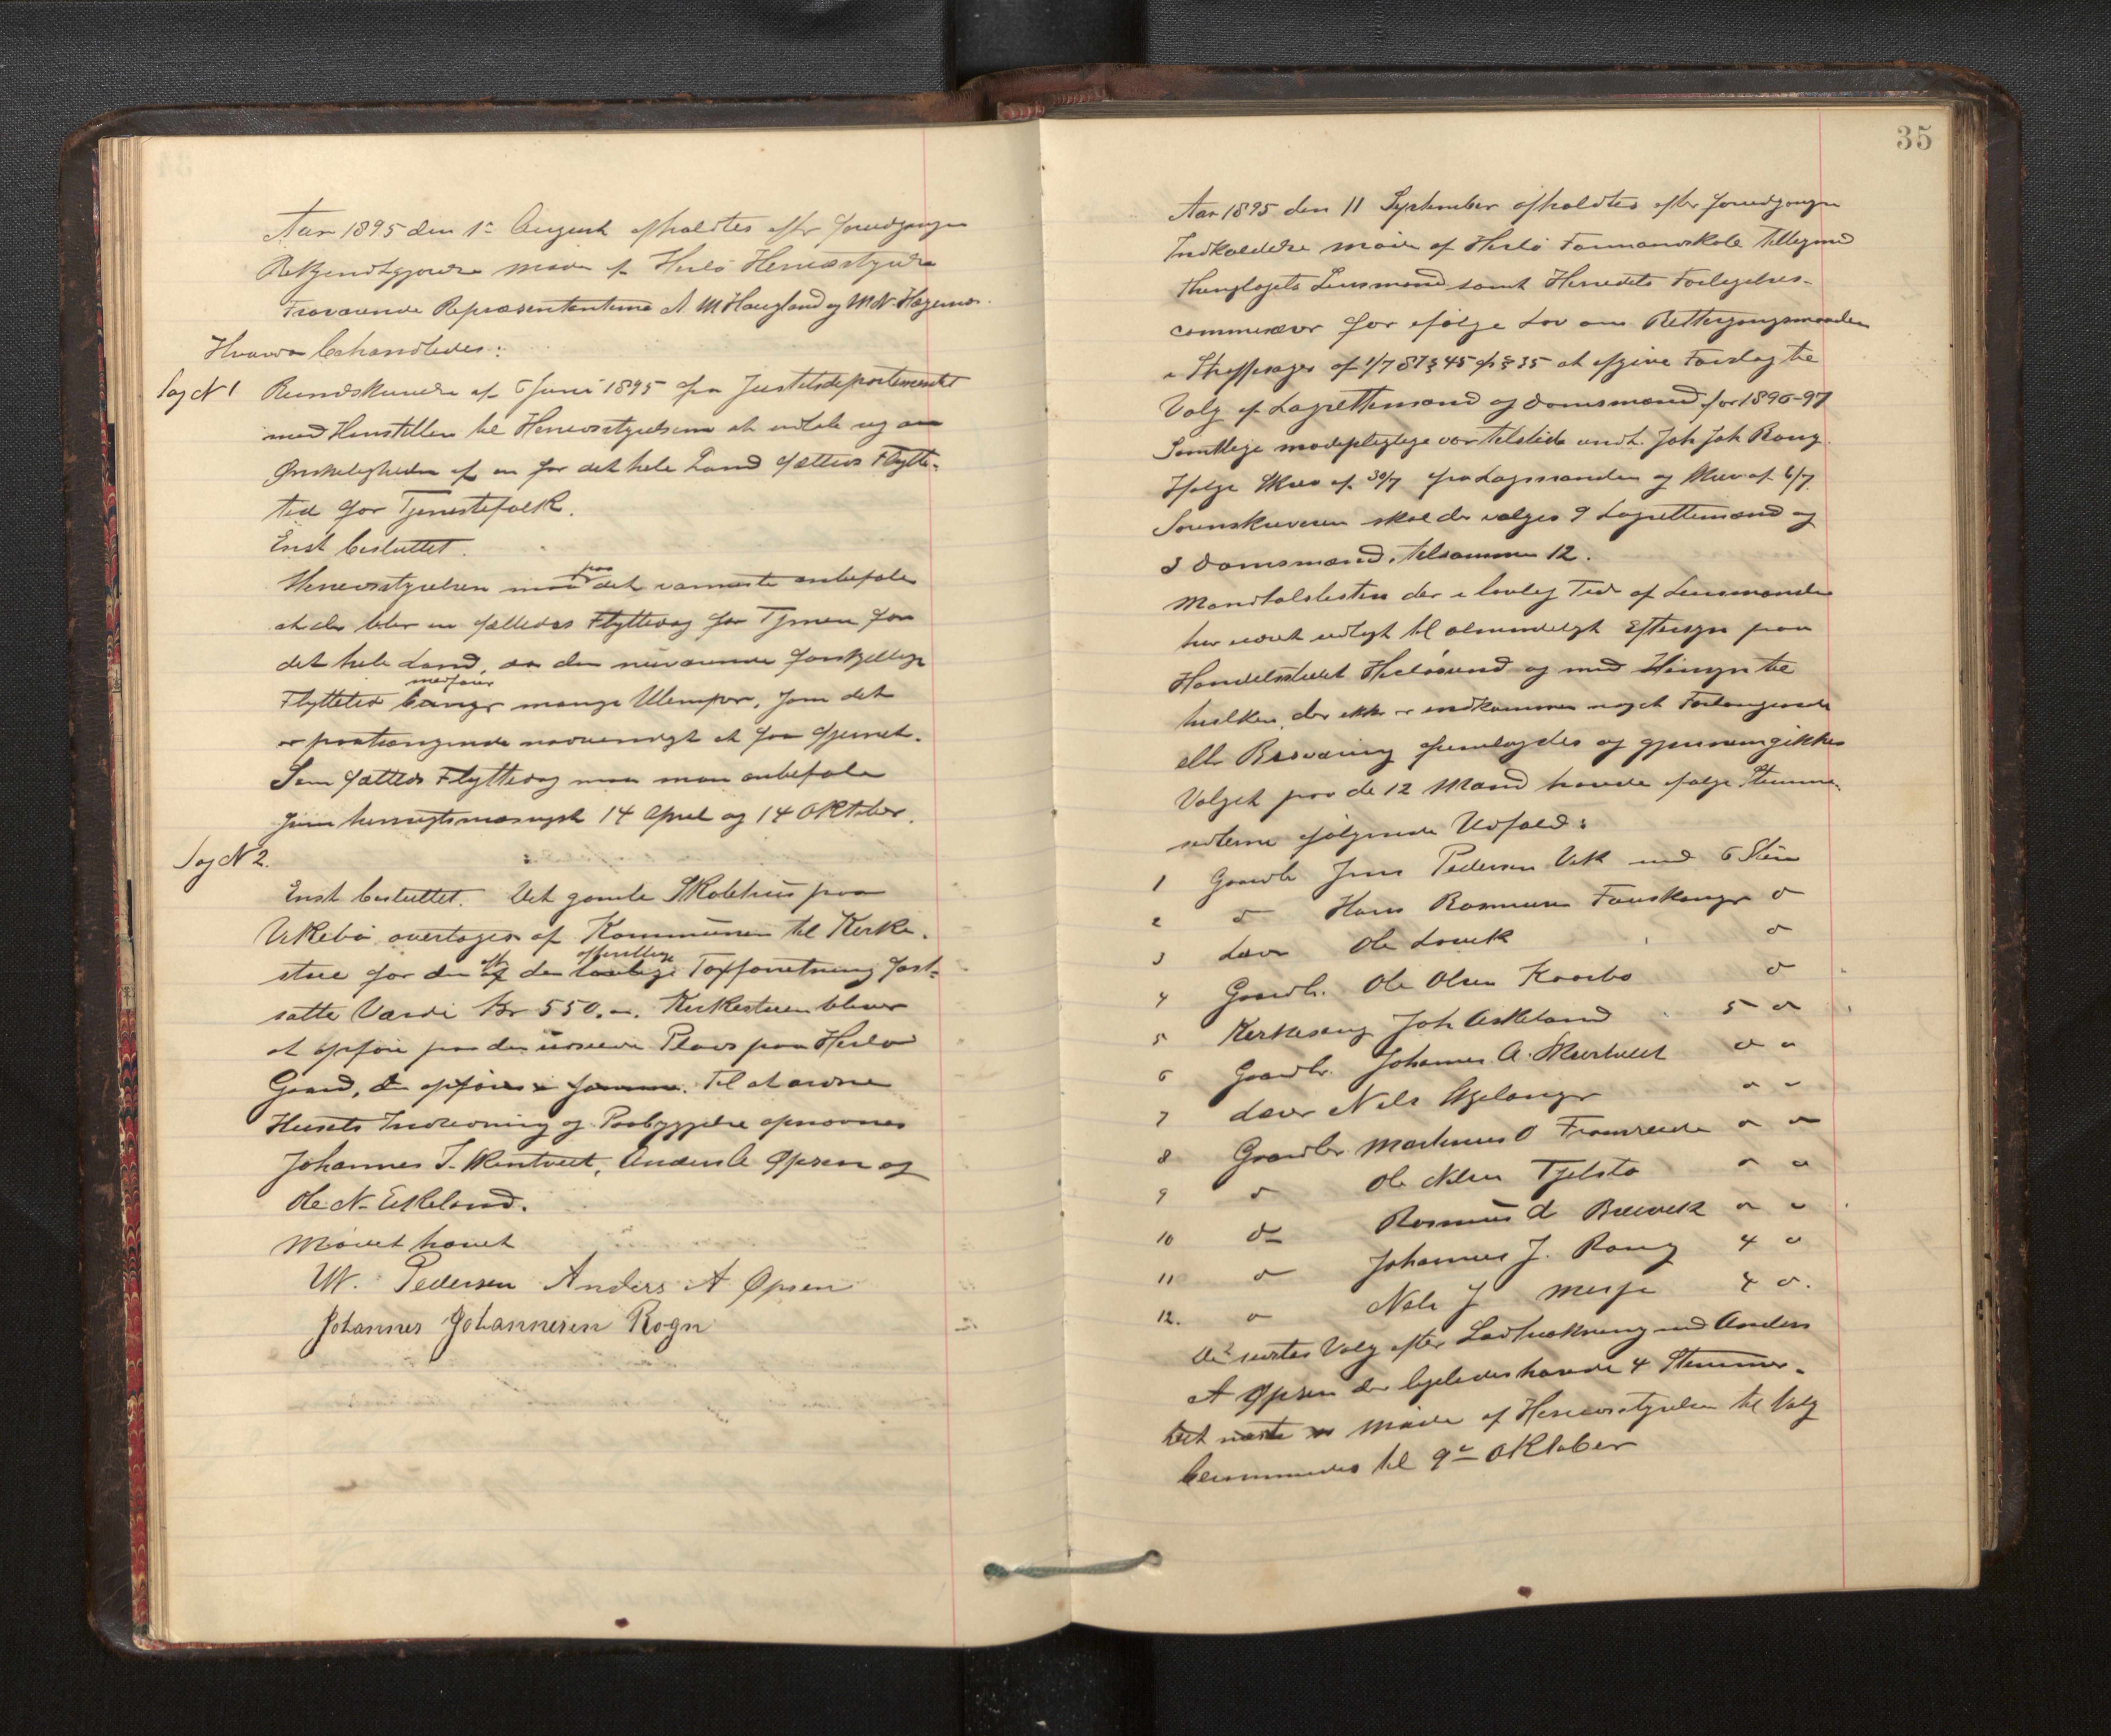 Aar 1895 den 1ste August afholdtes efter forudgangen
Bekjendtgjørelse møde af Herlø Herredsstyrelse
Fraværende Repræsentanterne A M Haugland og M N. Hagenes.
Hvorda behandledes:
Sag N 1 Rundskrivelse af 6 Juni 1895 fra Justitsdepartementet
med Henstillen til Herredsstyrelserne at udtale sig om
Ønskeligheden af en for det hele Land fælleds Flytte-
tid for Tjenestefolk.
Enst besluttet.
Herredsstyrelsen maa paa det varmeste anbefale
at der blir en fælleds Flyttedag for Tjenere for
det hele Land, da den nuværende forskjellige
Flyttetid medfører mange Ulemper, som det
er paatrængende nødvendigt at faa fjernet.
Som fælleds Flyttedag maa man anbefale
som hensigtsmæssigst 14 April og 14 Oktober.
Sag N 2.
Enst besluttet. Det gamle Skolehus paa
Utkebø overtages af Kommunen til Kirke-
stue for den ved den offentlige Taxforretning fast-
satte Værdi Kr 550.-. Kirkestuen bliver
at opføre paa den udseede Plads paa Herlø
Gaard, Til at ordne
Husets Indredning og Paabyggelse opnævnes
Johannes J. Kentveit, Anders A Opsen og
Ole N. Eskeland.
Mødet hævet
W. Pedersen Anders A Opsen
Johannes Johannesen Rogn
35
Aar 1895 den 11 September afholdtes efter forudgangen
Indkaldelse møde af Herlø Formandskab tilligemed
Thinglagets Lensmand samt Herredets Forligelses-
commissærer for ifølge Lov om Rettergangsmaaden
i Straffesager af 1/7 87 § 45 jfr § 35 at afgive Forslag til
Valg af Lagrettemænd og Domsmænd for 1896-97
Samtlige mødepligtige var tilstede undt. Joh Joh Rong.
Ifølge Skriv af 30/7 fra Lagmanden og Skriv af 6/7
Sorenskriveren skal der vælges 9 Lagrettemænd og
3 Domsmænd, tilsammen 12.
Mandtalslisten der i lovlig Tid af Lensmanden
har været udlagt til almindeligt Eftersyn paa
Handelsstedet Herløsund og med Hensyn til
hvilken der ikke er indkommen noget Forlangende
eller Besværing fremlagdes og gjennemgikkes
Valget paa de 12 Mænd havde ifølge Stemme-
sedlerne følgende Udfald:
1 Gaardb Jens Pedersen Vik med 6 Stem
2 do Hans Rasmusen Fauskanger do
3 Lærer Ole Landvik do
4 Gaardb. Ole Olsen Kaarbø do
5 Kirkesang Joh Askeland 5 do
6 Gaardbr. Johannes A. Skurtveit do do
7 Lærer Nils Uzelanger do do
8 Gaardbr Martinus O Fromreide do do
9 do Ole Nilsen Tjelstø do do
10 do Rasmus A Breivik do do
11 do Johannes J. Rong 4 do
12. do Nils J Misje 4 do.
De sidstes Valg efter Lodtrækning med Anders
A Opsen der ligeledes havde 4 Stemmer.
Det næste Møde af Herredsstyrelsen til Valg
berammedes til 9de Oktober